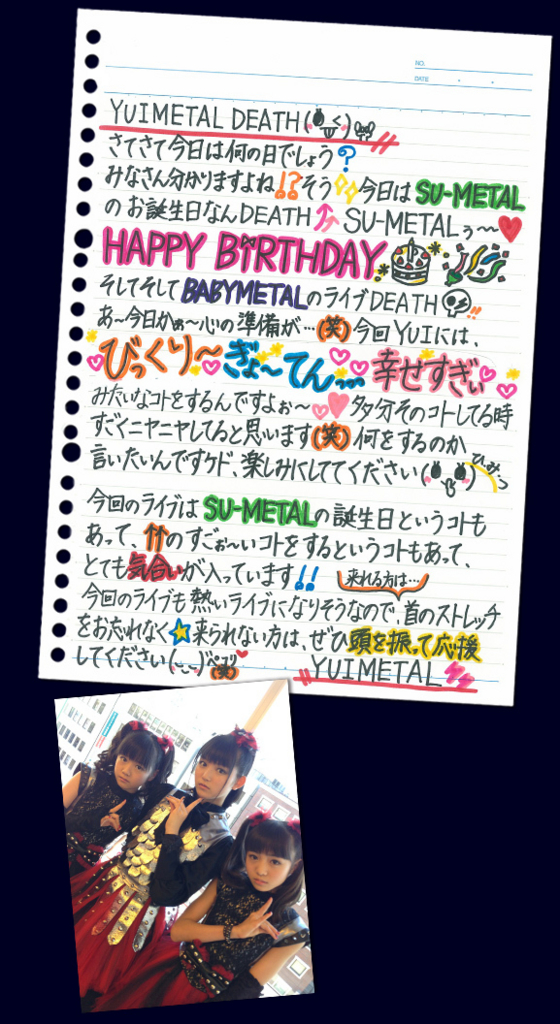 NO.
DATE
YUIMETAL DEATH
さてさて今日は何の日でしょう?
みなさん分かりますよね!?そう今日はSU-METAL
のお誕生日なんDEATH SU-METALぅ〜
HAPPY BiRTHDAY
そしてそしてBABYMETALのライブDEATH!!
あ〜今日かぁ〜心の準備が…(笑)今回YUIには、
びっくり〜ぎょ〜てんっ…幸せすぎぃ
みたいなコトをするんですよぉ〜 多分そのコトしてる時
すごくニヤニヤしてると思います(笑)何をするのか
言いたいんですケド、楽しみにしててください
ひみつ
今回のライブはSU-METALの誕生日というコトも
あって、のすごぉ〜いコトをするというコトもあって、
とても気合いが入っています!!
来れる方は…
今回のライブも熱いライブになりそうなので、首のストレッチ
をお忘れなく☆来られない方は、ぜひ頭を振って応援
してください(;_;)ペコリ(笑)
YUIMETAL